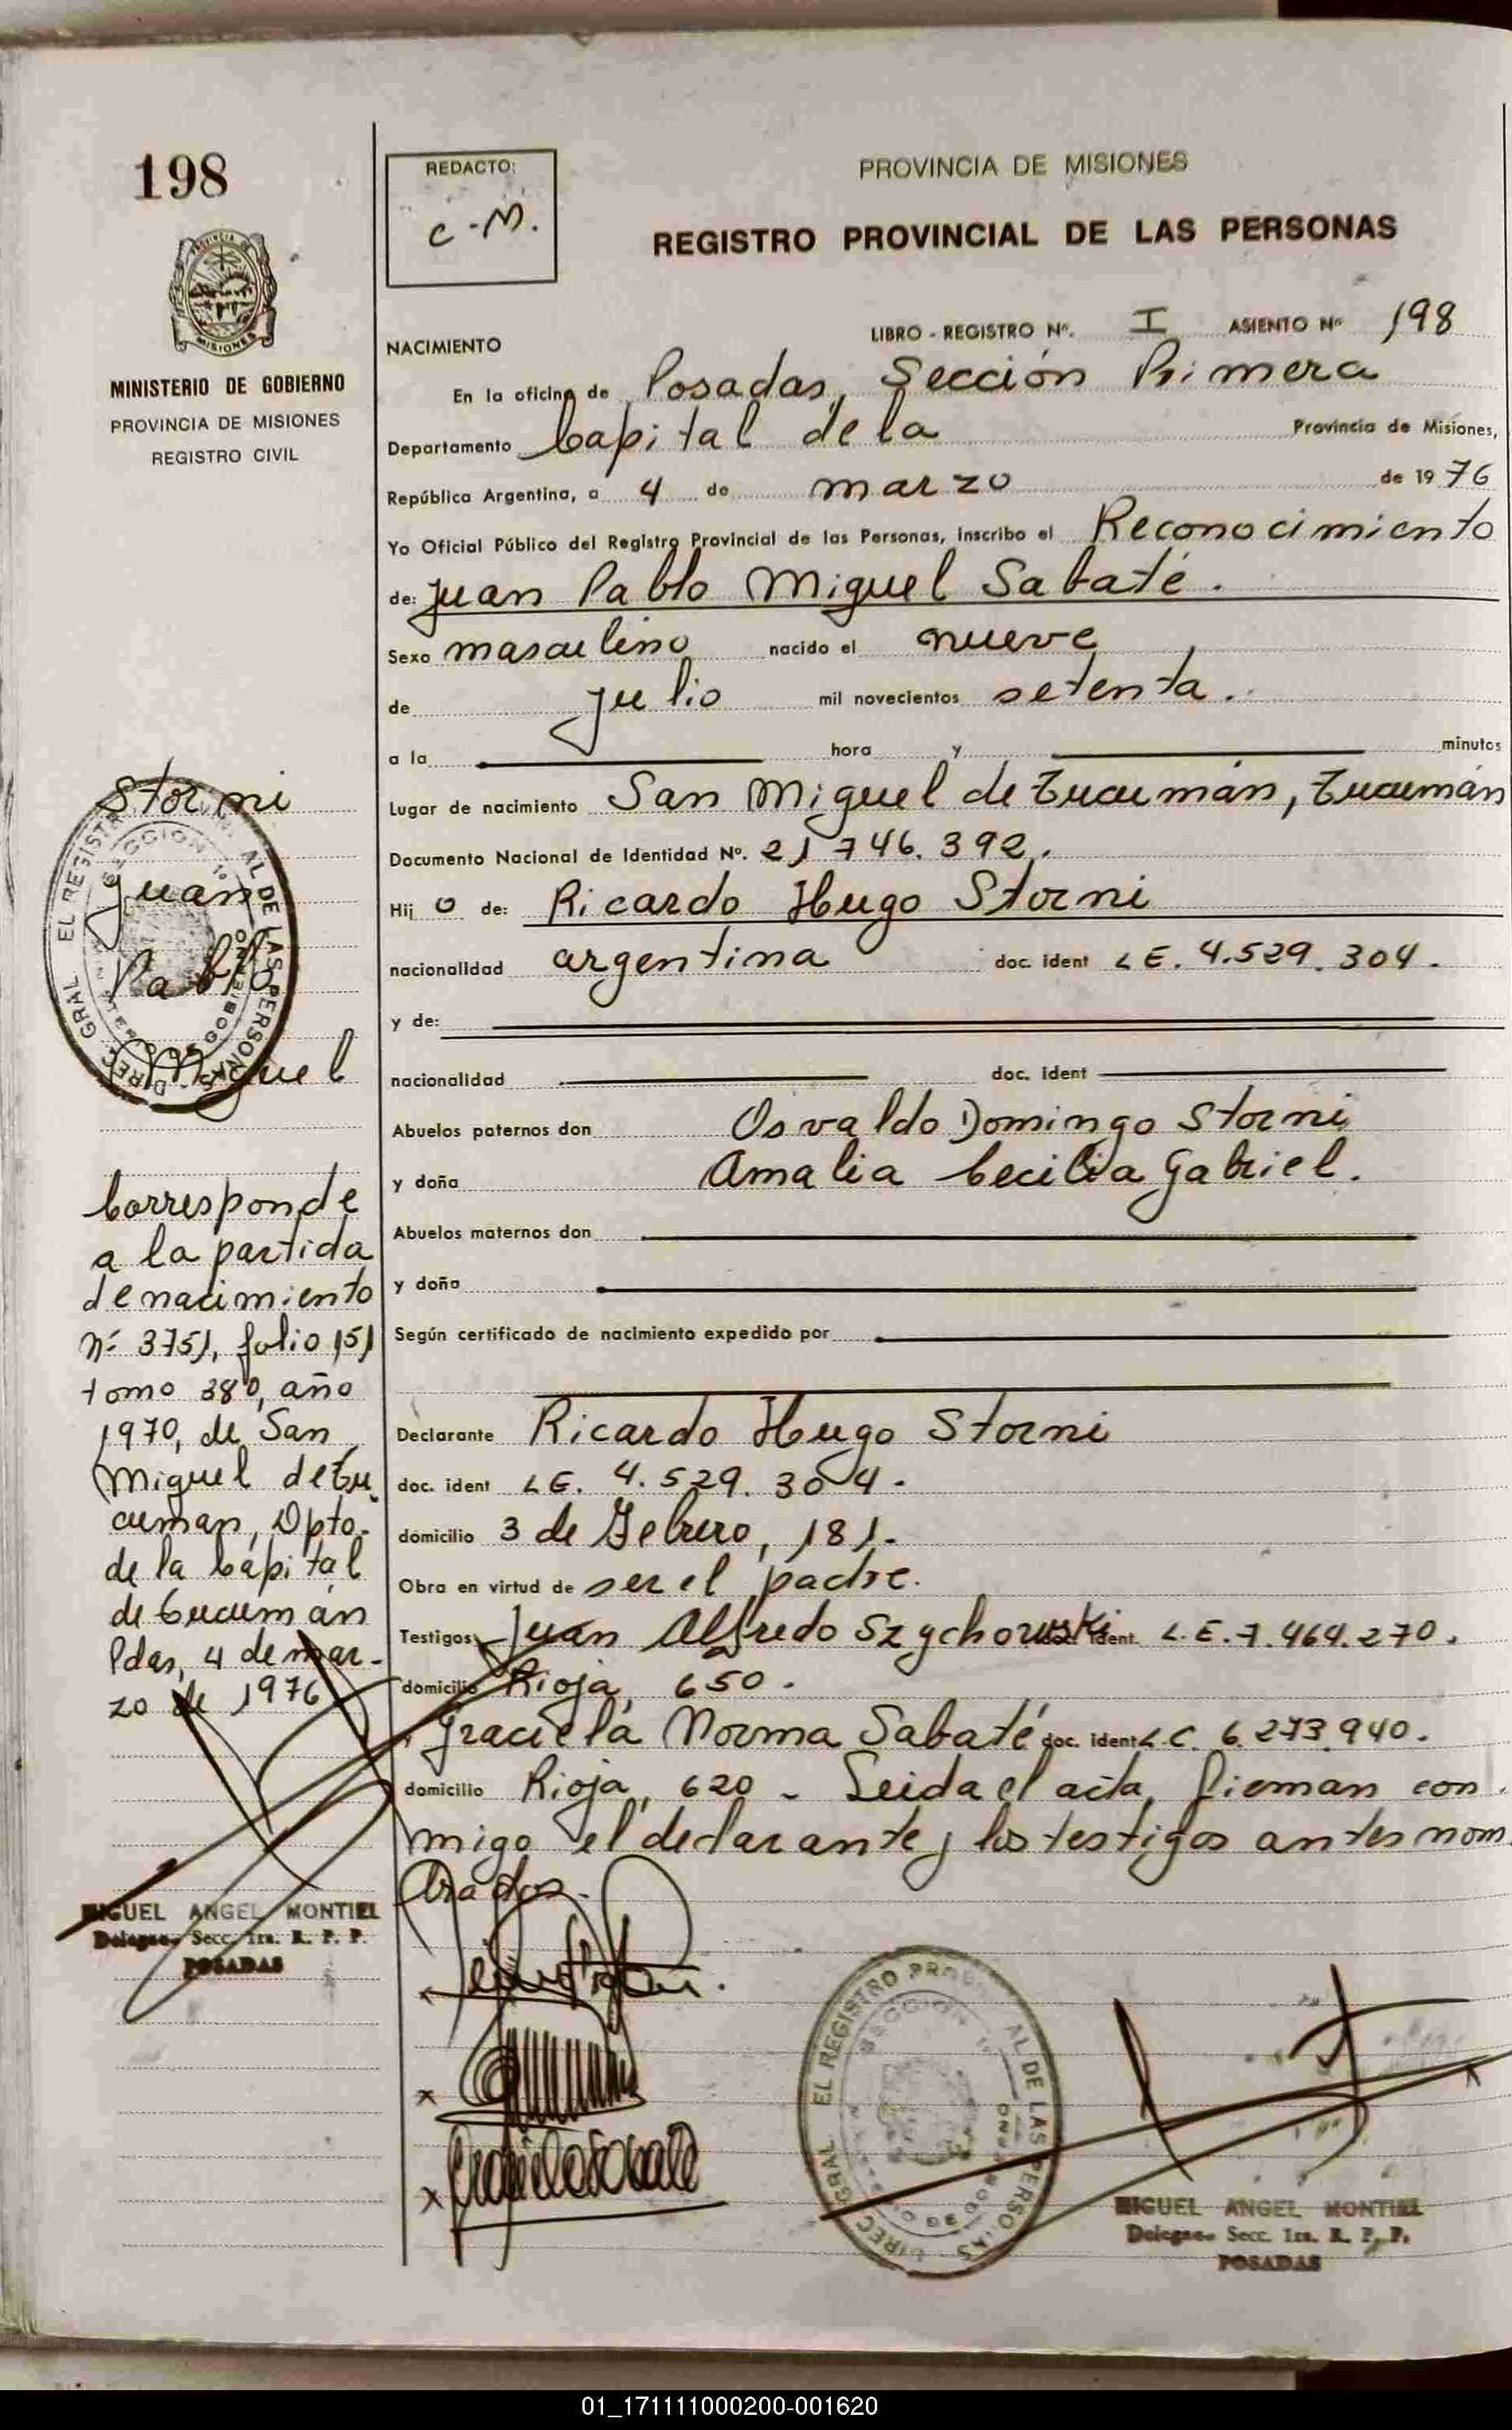 198
REDACTO:
C-M.
PROVINCIA DE MISIONES
REGISTRO PROVINCIAL DE LAS PERSONAS
MISIONES
MINISTERIO DE GOBIERNO
PROVINCIA DE MISIONES
REGISTRO CIVIL
NACIMIENTO
LIBRO - REGISTRO Nº. I ASIENTO Nº 198
En la oficina de Posadas, Sección Primera
Departamento Capital de la Provincia de Misiones,
República Argentina, a 4 de marzo de 1976
Yo Oficial Público del Registro Provincial de las Personas, inscribo el Reconocimiento
de: Juan Pablo Miguel Sabaté.
Sexo masculino nacido el nueve
de julio mil novecientos setenta.
a la hora y minutos
Lugar de nacimiento San Miguel de Tucumán, Tucumán
Documento Nacional de Identidad Nº. 21 746.392.
Hij o de: Ricardo Hugo Storni
nacionalidad argentina doc. ident LE. 4.529.304.
y de:
nacionalidad doc. ident
Abuelos paternos don Osvaldo Domingo Storni
y doña Amalia Cecilia Gabriel.
Abuelos maternos don
y doña
Según certificado de nacimiento expedido por
Declarante Ricardo Hugo Storni
doc. ident LE. 4.529.304.
domicilio 3 de Febrero, 181.
Obra en virtud de ser el padre.
Testigos Juan Alfredo Szychowski doc. ident. L.E. 7.464.270.
domicilio Rioja, 650.
Graciela Norma Sabaté doc. ident L.C. 6.273.940.
domicilio Rioja, 620 - Leida el acta, firman con
migo el declarante y los testigos antes nom
brados.
Storni
Juan
Pablo
Miguel
Corresponde
a la partida
de nacimiento
Nº 3751, folio 151
tomo 380, año
1970, de San
Miguel de Tu
cuman, Dpto.
de la Capital
de Tucumán
Pdas, 4 de mar-
zo de 1976
MIGUEL ANGEL MONTIEL
Delegado Secc. 1ra. R. P. P.
POSADAS
Graciela Sabaté
MIGUEL ANGEL MONTIEL
Delegado Secc. 1ra. R. P. P.
POSADAS
01_171111000200-001620